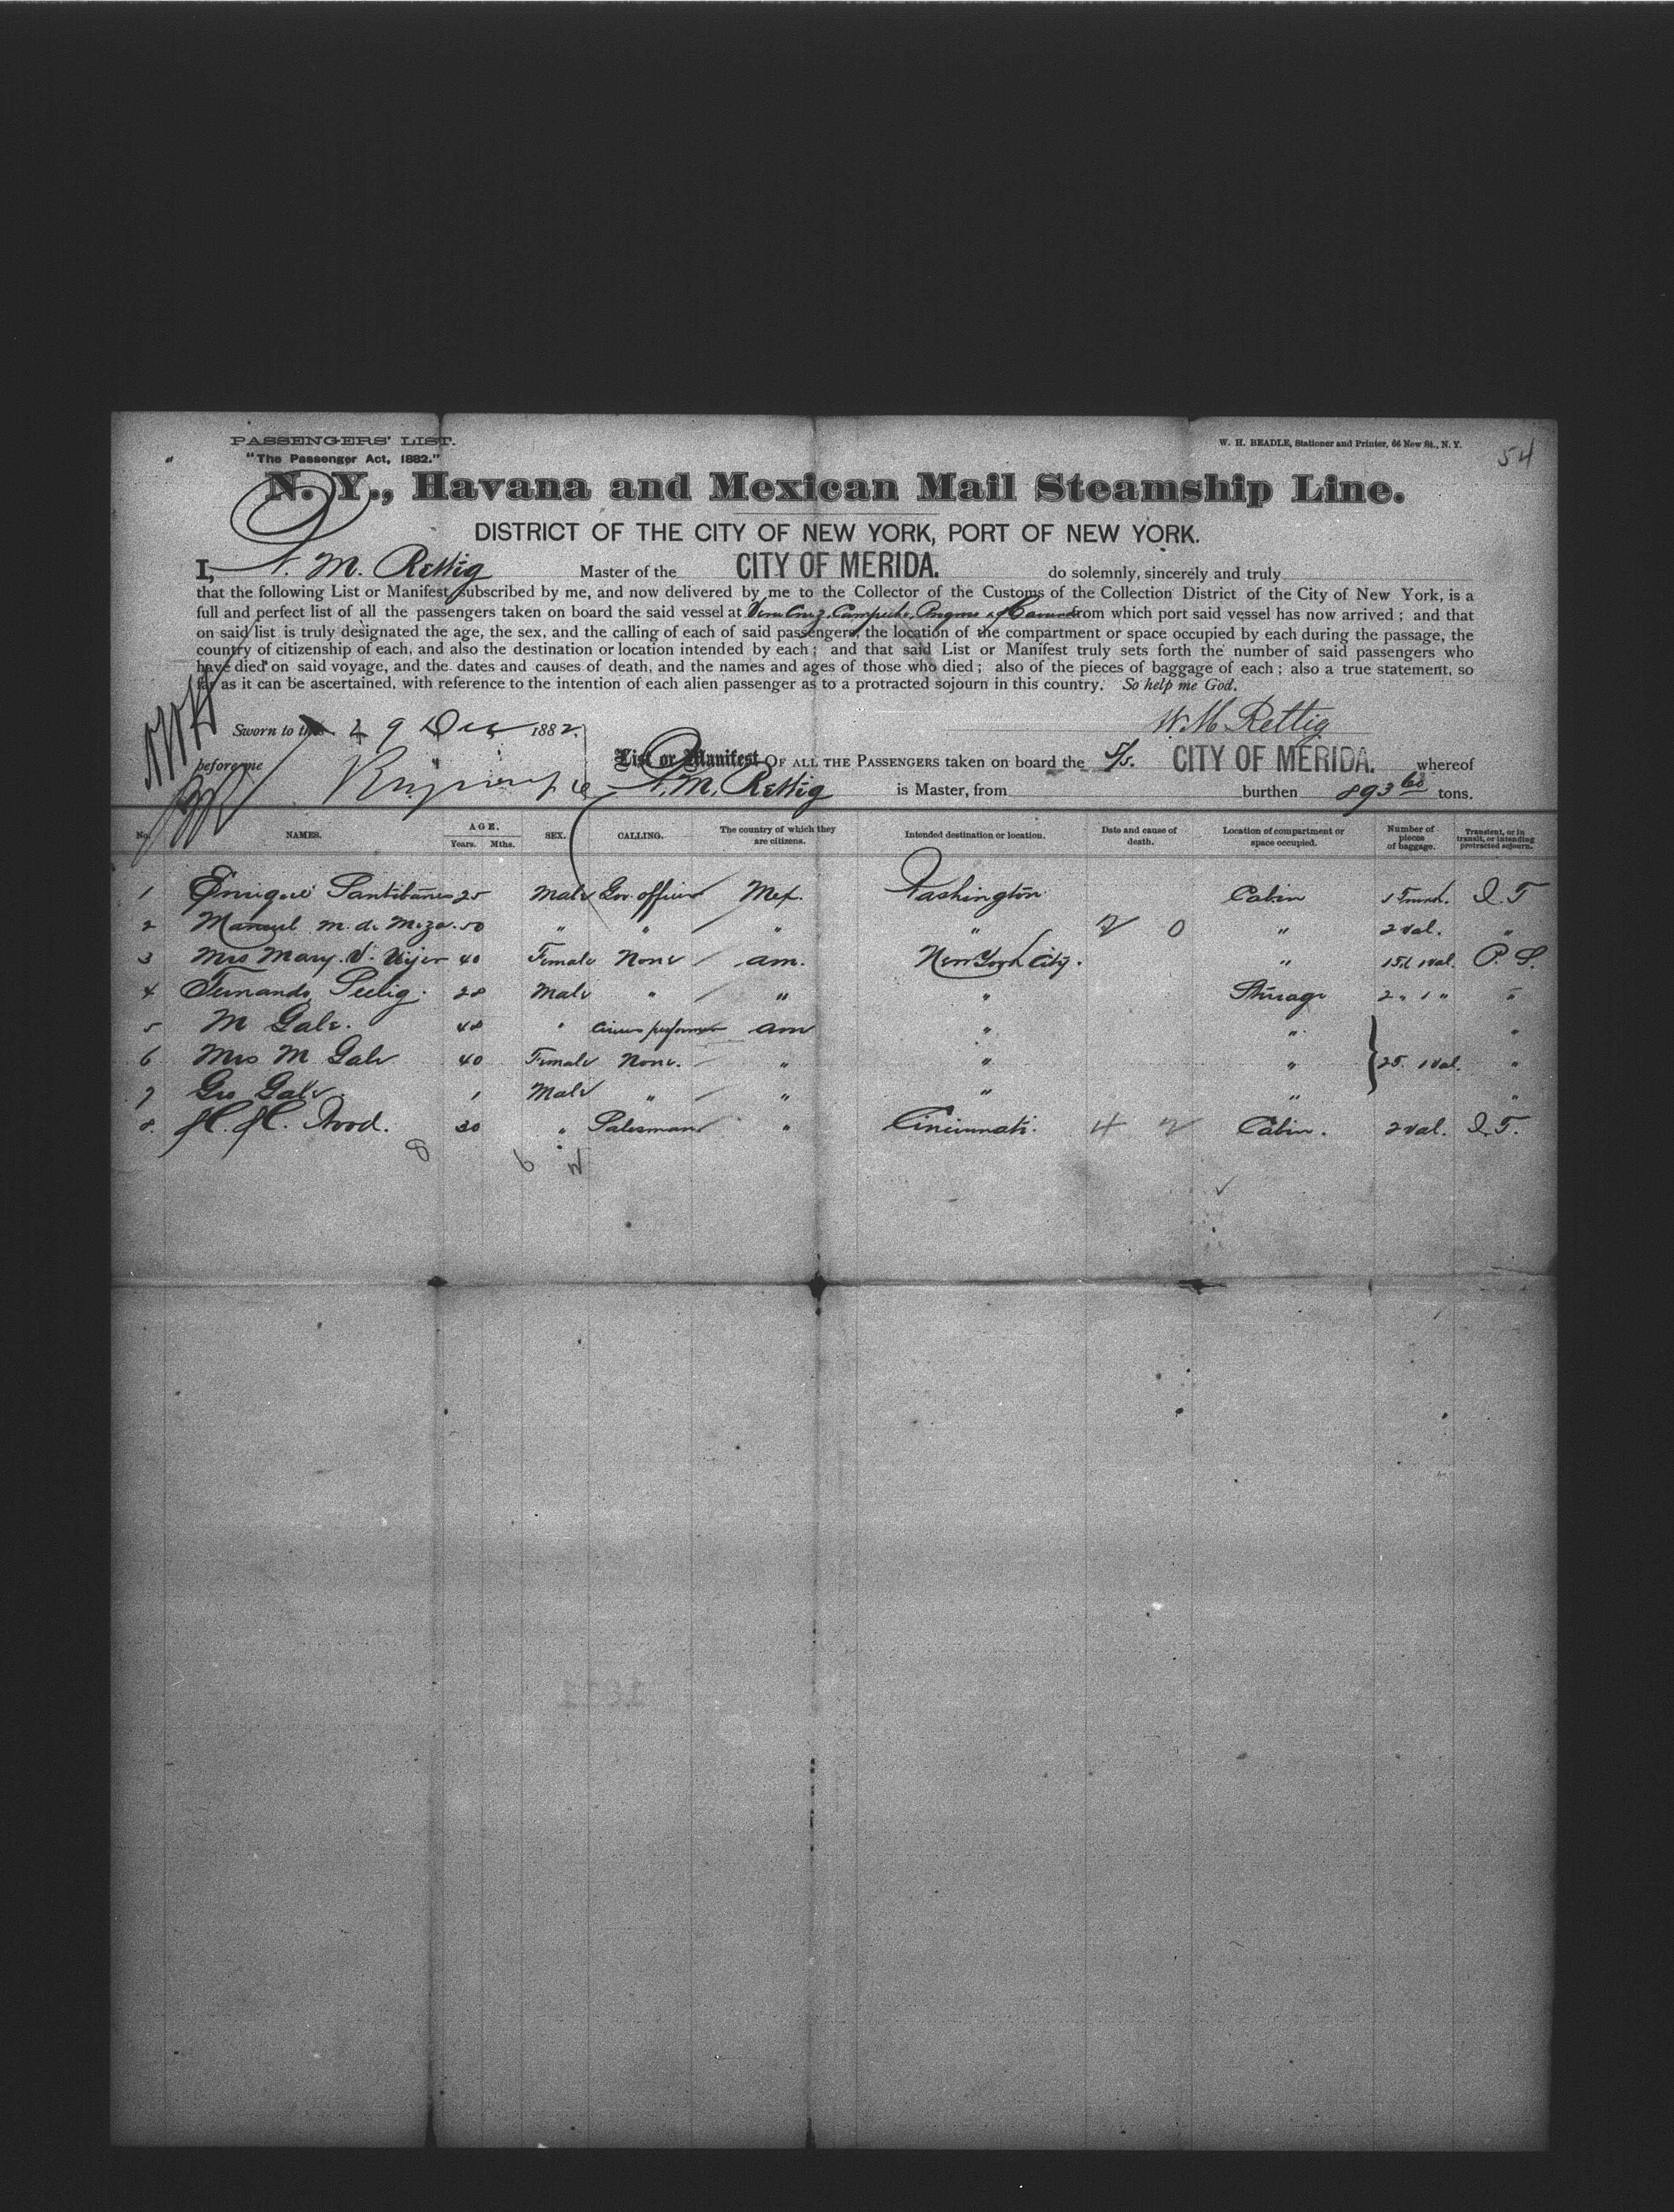 PASSENGERS' LIST.
"The Passenger Act, 1882."
W. H. BEADLE, Stationer and Printer, 66 New St., N. Y.
54
N. Y., Havana and Mexican Mail Steamship Line.
DISTRICT OF THE CITY OF NEW YORK, PORT OF NEW YORK.
I, W. M. Rettig Master of the CITY OF MERIDA. do solemnly, sincerely and truly
that the following List or Manifest, subscribed by me, and now delivered by me to the Collector of the Customs of the Collection District of the City of New York, is a
full and perfect list of all the passengers taken on board the said vessel at Vera Cruz, Campeche, Progreso & Havana from which port said vessel has now arrived; and that
on said list is truly designated the age, the sex, and the calling of each of said passengers, the location of the compartment or space occupied by each during the passage, the
country of citizenship of each, and also the destination or location intended by each; and that said List or Manifest truly sets forth the number of said passengers who
have died on said voyage, and the dates and causes of death, and the names and ages of those who died; also of the pieces of baggage of each; also a true statement, so
far as it can be ascertained, with reference to the intention of each alien passenger as to a protracted sojourn in this country. So help me God.
W. M. Rettig
Sworn to this 29 Dec 1882.
before me
List or Manifest OF ALL THE PASSENGERS taken on board the S/s. CITY OF MERIDA. whereof
W. M. Rettig is Master, from burthen 893 60 tons.
No. NAMES. AGE. Years. Mths. SEX. CALLING. The country of which they are citizens. Intended destination or location. Date and cause of death. Location of compartment or space occupied. Number of pieces of baggage. Transient, or in transit, or intending protracted sojourn.
1 Enrique Santibañes 25 Male Gov. officer Mex. Washington Cabin 1 Trunk. I. T
2 Manuel M. de Meza. 50 " " " " 2 0 " 2 val. "
3 Mrs Mary. V. 40 Female None Am. New York City. " 1 val. P. S.
4 Fernando Seelig. 28 Male " " " Steerage 2 " 1 " "
5 M Gale. 48 " Circus performer Am " " "
6 Mrs M Gale 40 Female None. " " " } 2 1 val. "
7 Geo Gale. 1 Male " " " " "
8. H. H. Wood. 30 " Salesman " Cincinnati. 4 2 Cabin. 2 val. I. T.
8 6 2